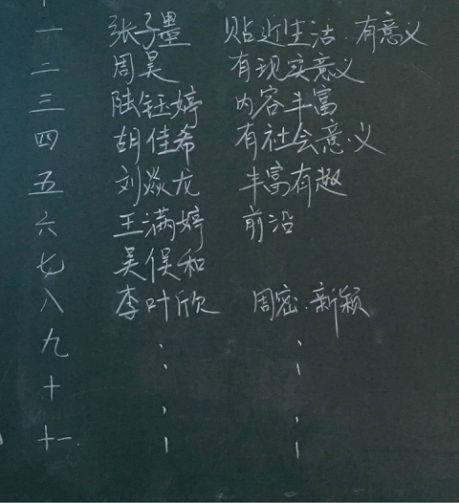 一 张子墨 贴近生活.有意义
二 周昊 有现实意义
三 陆钰婷 内容丰富
四 胡佳希 有社会意义
五 刘焱龙 丰富有趣
六 王满婷 前沿
七 吴俣和
八 李叶欣 周密.新颖
九
十
十一